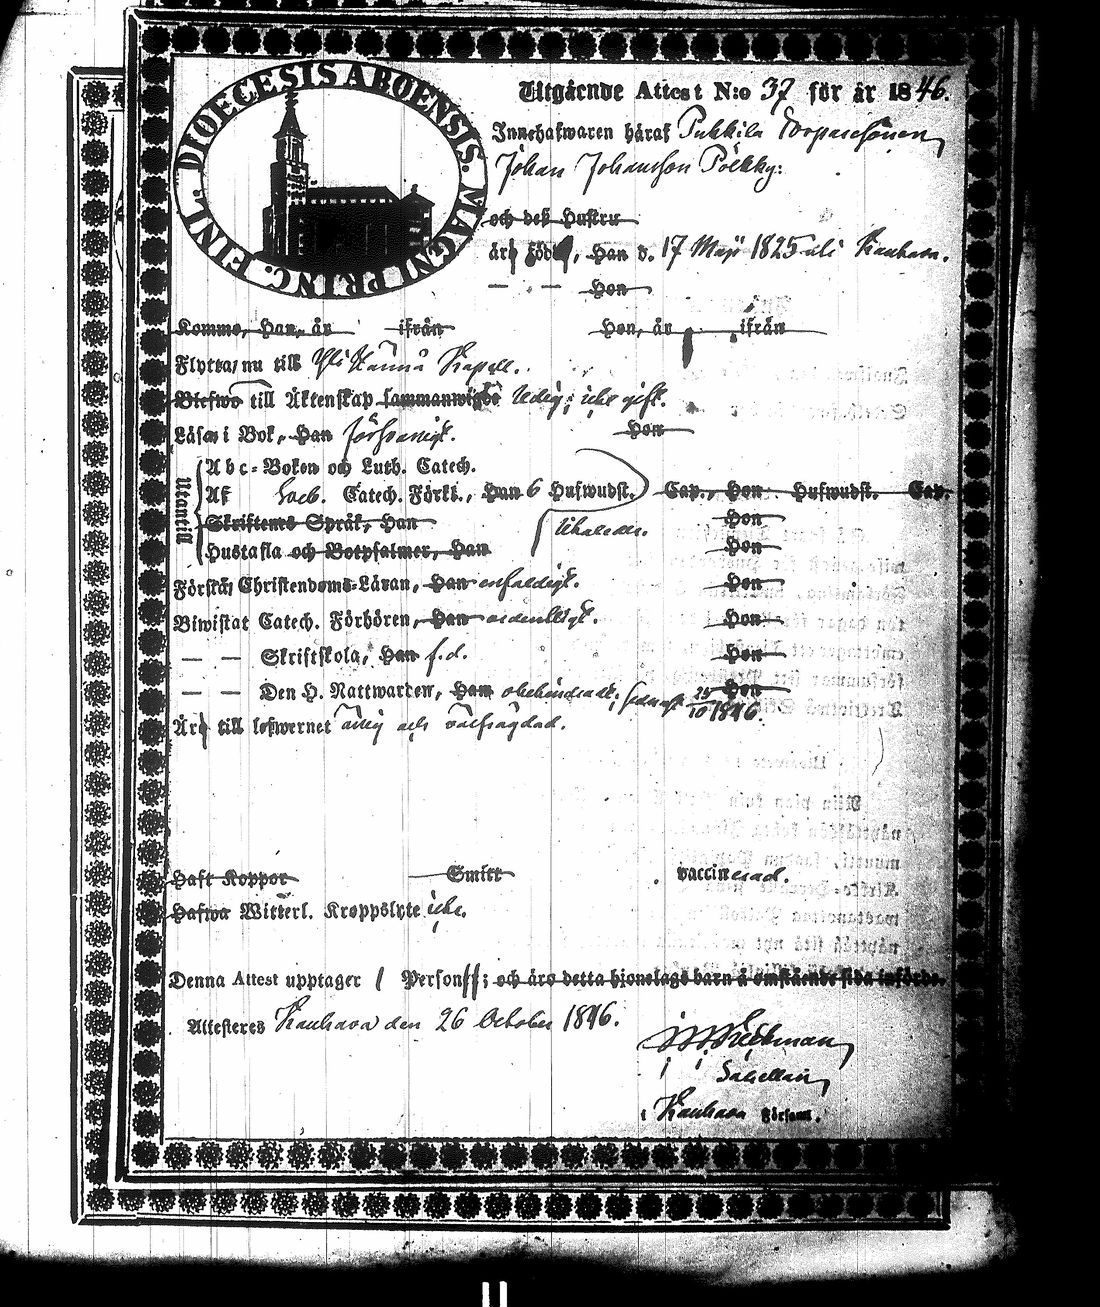 DIOECESIS ABOENSIS. MAGNI PRINC. FINL.
Utgående Attest N:o 37 för år 1846.
Innehafwaren häraf Pukkila Torparesonen,
Johan Johansson Pölkky:
och deß Hustru
äro född, Han d. 17 Maji 1825 uti Kauhava.
— — Hon
Komne, Han, år ifrån Hon, år ifrån
Flyttar nu till Yli Kännå Kapell.
Blefwo till Äktenskap sammanwigde ledig; icke gift.
Läsa i Bok, Han försvarligt. Hon
Utantill
Abc-Boken och Luth. Catech.
Af Sveb. Catech. Förkl., Han 6 Hufwudst. Cap., Hon Hufwudst. Cap.
Skriftenes Språk, Han Hon
Hustafla och Botpsalmer, Han Hon
Förstår Christendoms-Läran, Han enfaldigt. Hon
Biwistat Catech. Förhören, Han ordentligt. Hon
— — Skriftskola, Han f.d. Hon
— — Den H. Nattwarden, Han obehindradt; senast 25/10 1846. Hon
Äro till lefwernet ärlig och välfrägdad.
Haft Koppor Smitt vaccinerad.
Hafwa Witterl. Kroppslyte icke.
Denna Attest upptager 1 Person; och äro detta hjonelags barn å omstående sida införde.
Attesteres Kauhava den 26 October 1846.
Sacellan,
i Kauhava Församl.